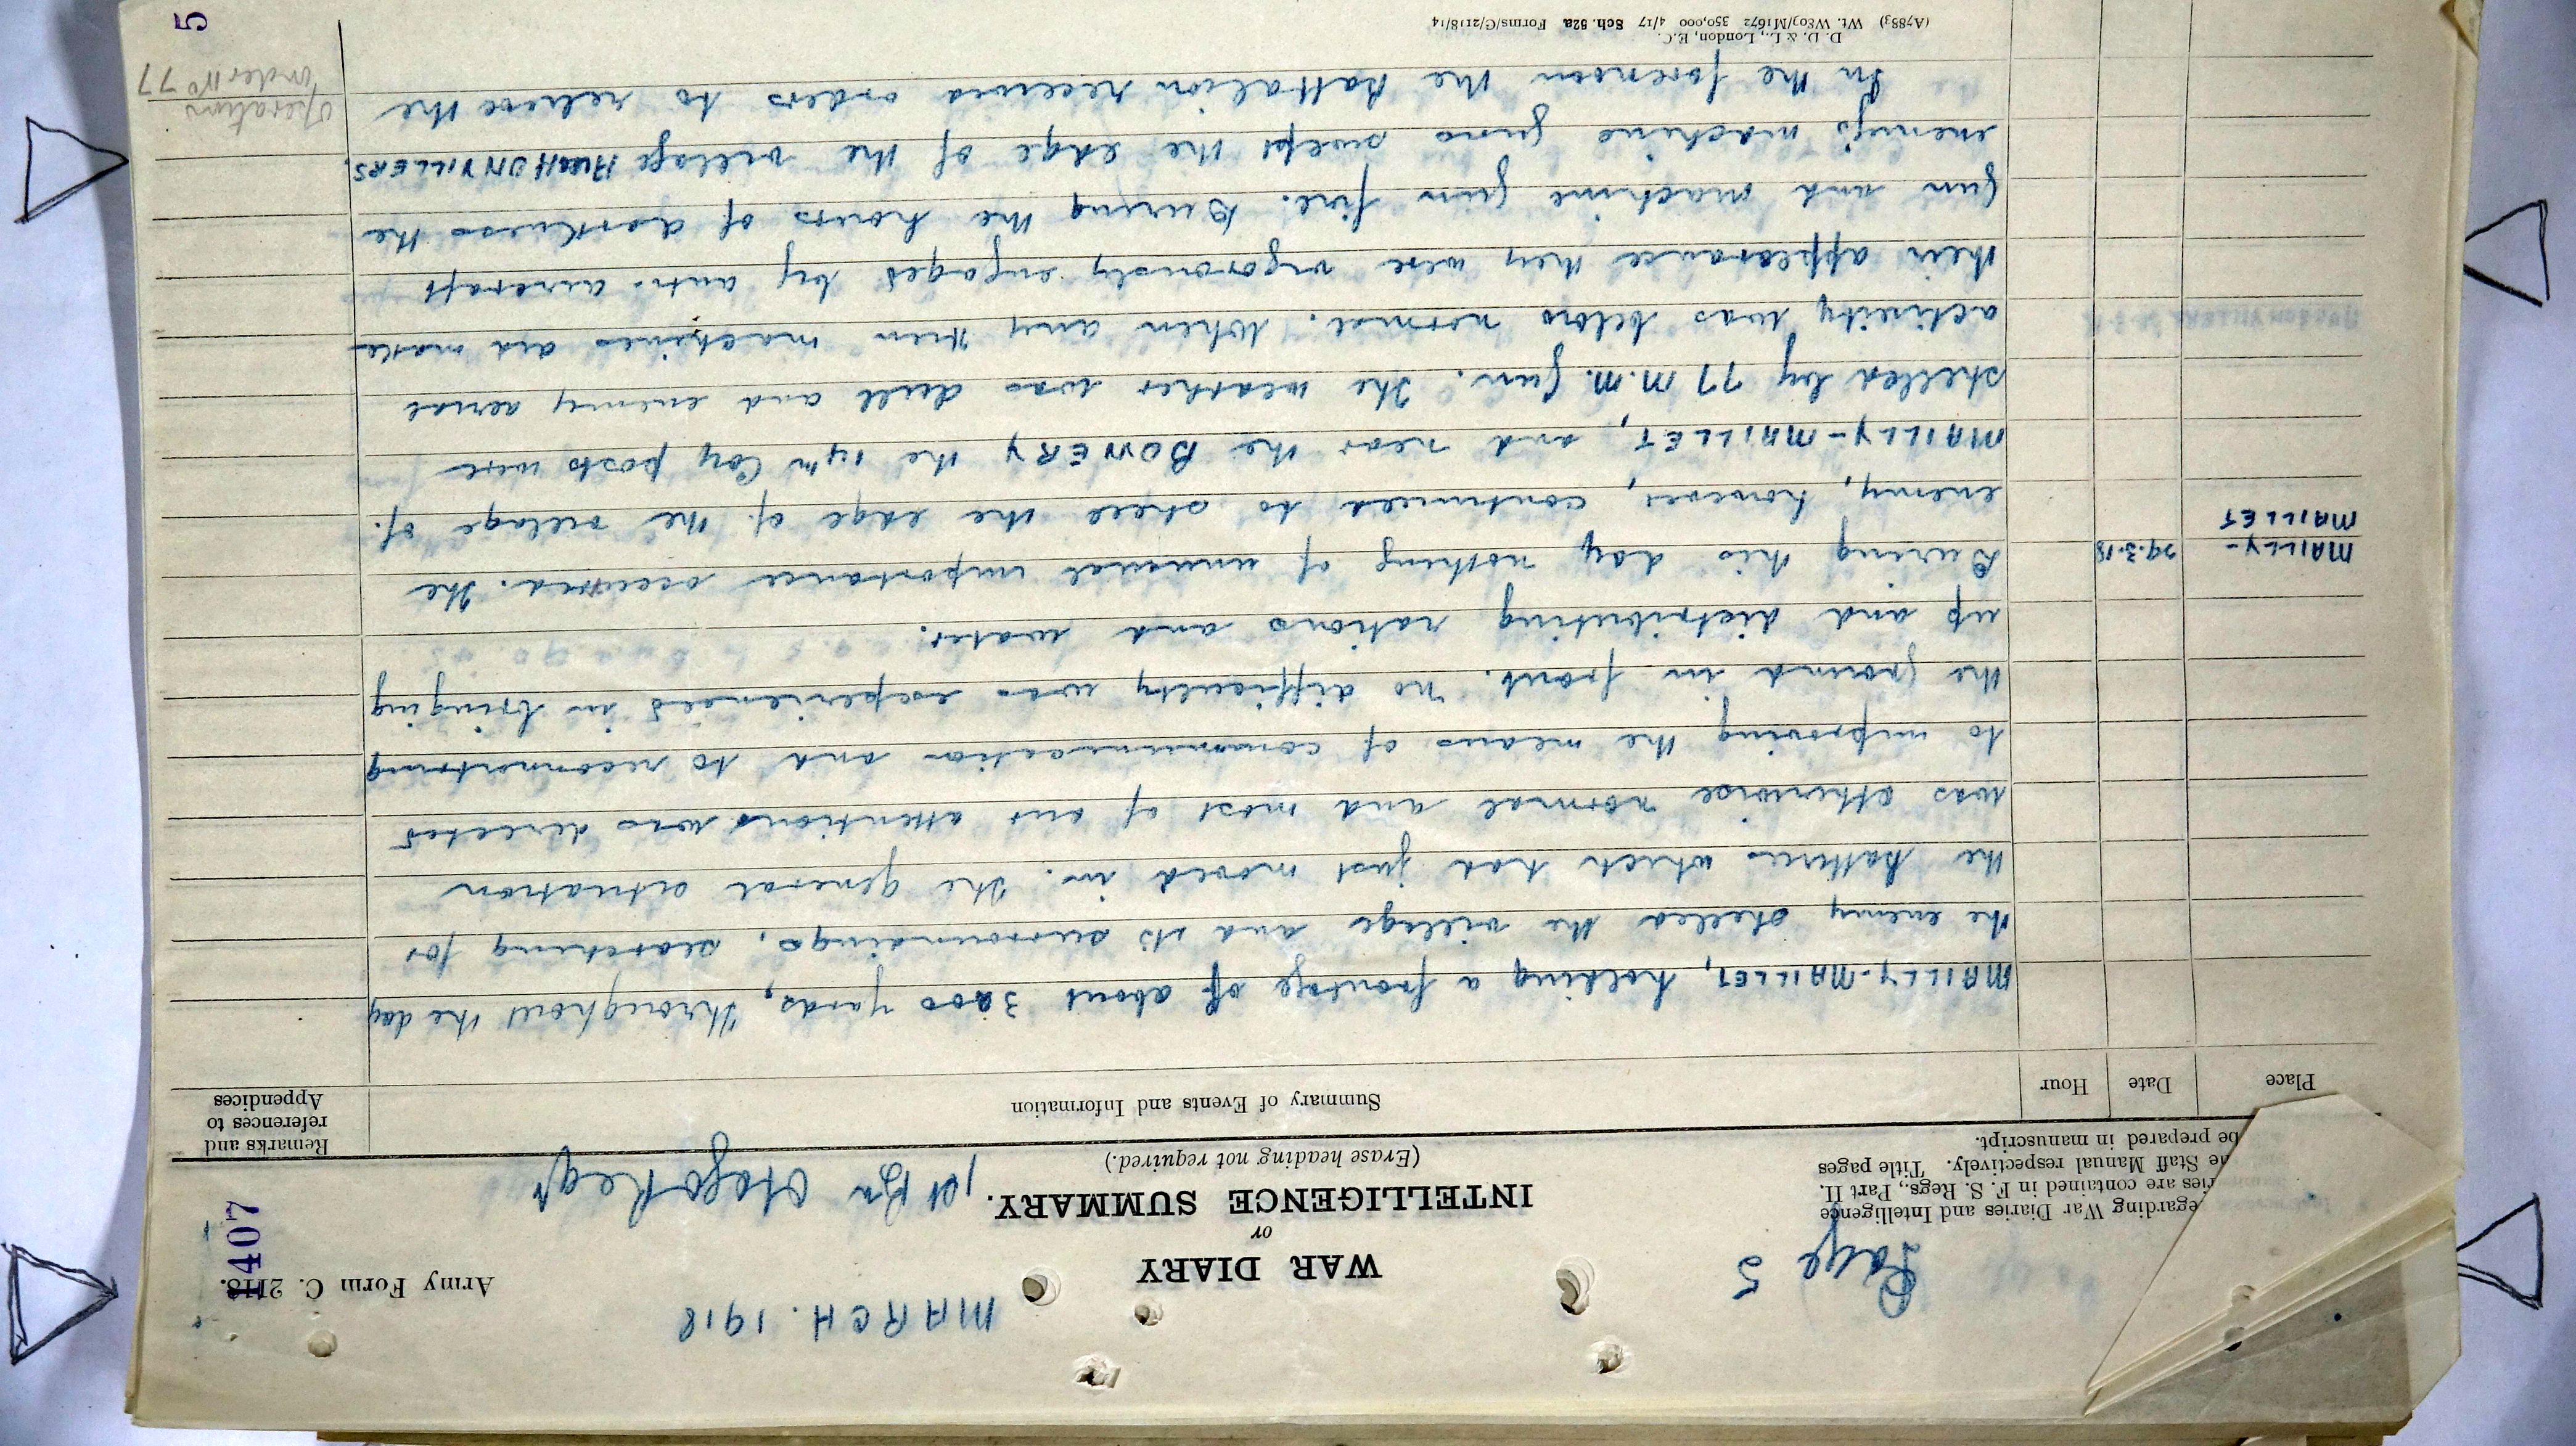 Page 5
MARCH. 1918
Army Form C. 2118.
1407
WAR DIARY
or
INTELLIGENCE SUMMARY.
1st Bn Otago Regt
(Erase heading not required.)
egarding War Diaries and Intelligence
ries are contained in F. S. Regs., Part II.
he Staff Manual respectively. Title pages
be prepared in manuscript.
Place
Date
Hour
Summary of Events and Information
Remarks and
references to
Appendices
MAILLY-MAILLET, holding a frontage of about 3000 yards, throughout the day
the enemy shelled the village and its surroundings, searching for
the batteries which had just moved in. The general situation
was otherwise normal and most of our attentions was directed
to improving the means of communication and to reconnoitring
the ground in front. No difficulty was experienced in bringing
up and distributing rations and water.
MAILLY-
MAILLET
29.3.18
During this day nothing of unusual importance occurred. The
enemy, however, continued to shell the edge of the village of
MAILLY-MAILLET, and near the BOWERY the 14th Coy posts were
shelled by 77 M.M. gun. The weather was dull and enemy aerial
activity was below normal. When any their machines did make
their appearance they were vigorously engaged by anti-aircraft
gun and machine gun fire. During the hours of darkness the
enemy's machine guns swept the edge of the village AUCHONVILLERS.
In the forenoon the battalion received orders to relieve the
Operation
Order No 77
D. D. & L., London, E.C.
(A7883) Wt. W809/M1672 350,000 4/17 Sch. 52a Forms/C/2118/14
5